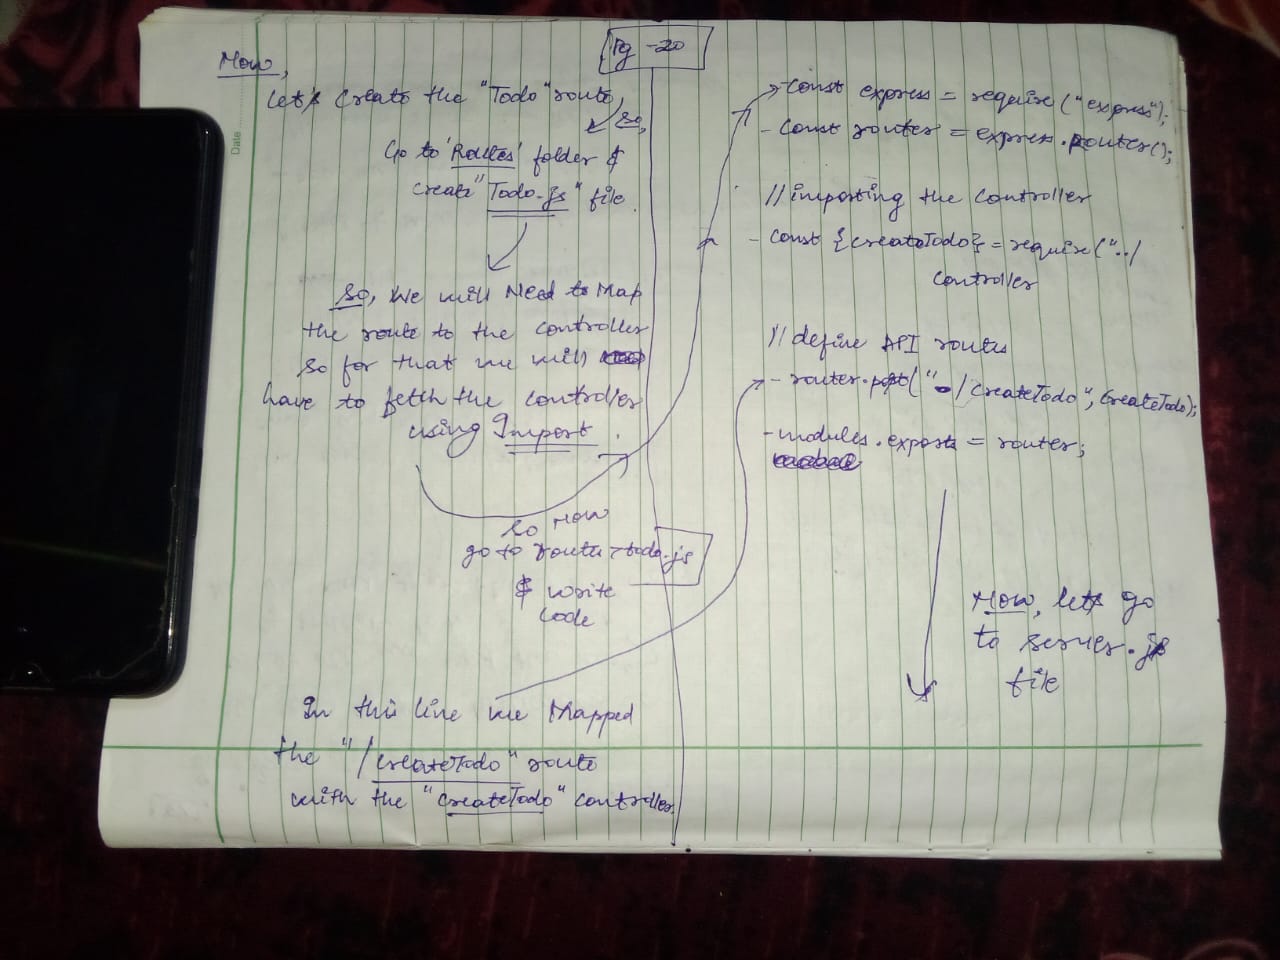 Pg - 20
Now,
let's Create the "Todo" route
So,
Go to 'Routes' folder &
create "Todo.js" file.
So, We will Need to Map
the route to the controller
so for that we will
have to fetch the controller
using Import.
So Now
go to route > todo.js
& write
code
In this line we Mapped
the "/createTodo" route
with the "createTodo" controller.
- const express = require("express");
- const router = express.Router();
// importing the controller
- const {createTodo} = require("../
controller
// define API routes
- router.post("/createTodo", createTodo);
- modules.exports = router;
Now, let's go
to server.js
file
Date